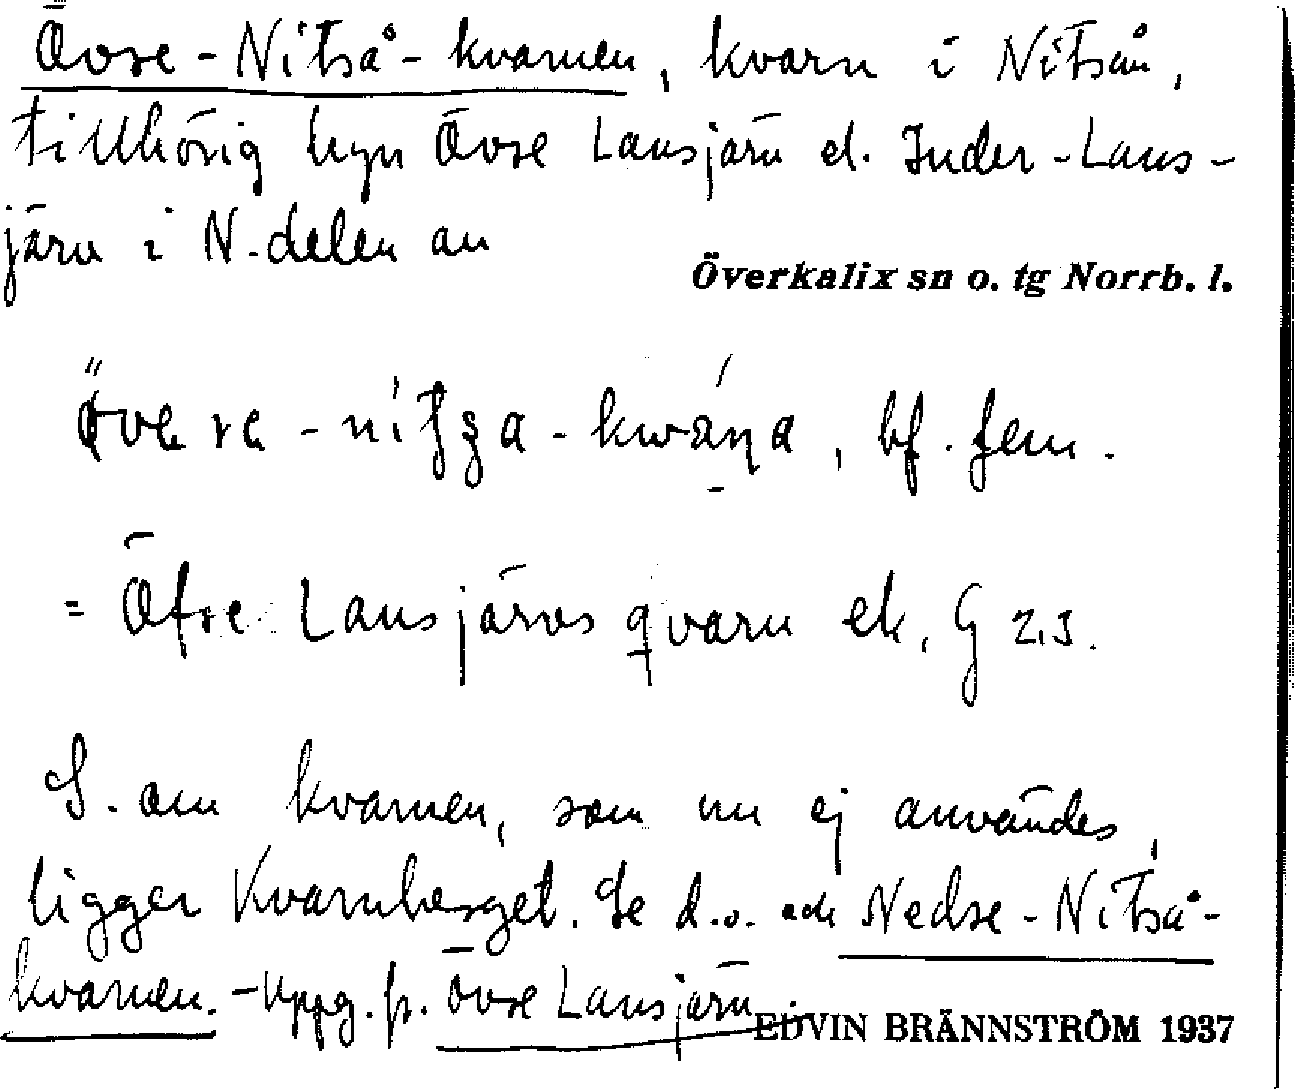 Övse-Nitså-kvarnen, kvarn i Nitsån,
tillhörig byn Övse Lansjärv el. Inder-Lans-
järv i N-delen av
Överkalix sn o. tg Norrb. l.
bf. fem.
= Öfre Lansjärvs qvarn ek. G 23.
S. om kvarnen, som nu ej användes,
ligger Kvarnberget. Se d.o. och Nedse-Nitså-
kvarnen. - Uppg. fr. Övse Lansjärv
EDVIN BRÄNNSTRÖM 1937